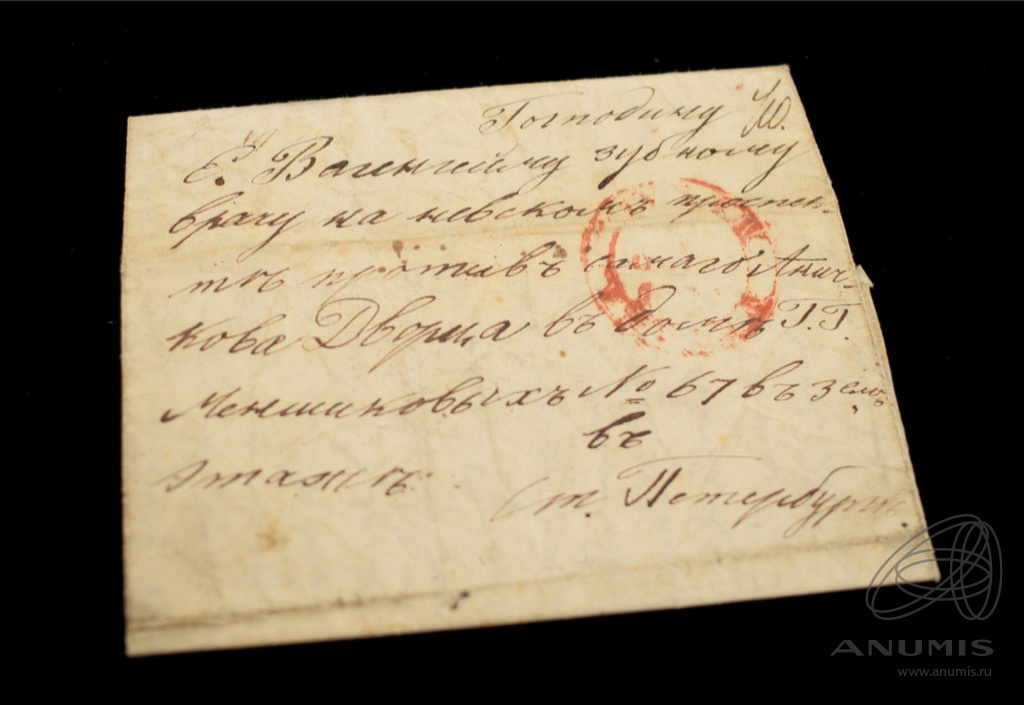 Господину
Е. Вагенгейму зубному
врачу на невскомъ проспек-
тѣ противъ самаго Анич-
кова Дворца въ домѣ Г.Г.
Меншиковыхъ № 67 въ 3 емъ
въ
этажѣ.
Ст. Петербургѣ.
ANUMIS
www.anumis.ru